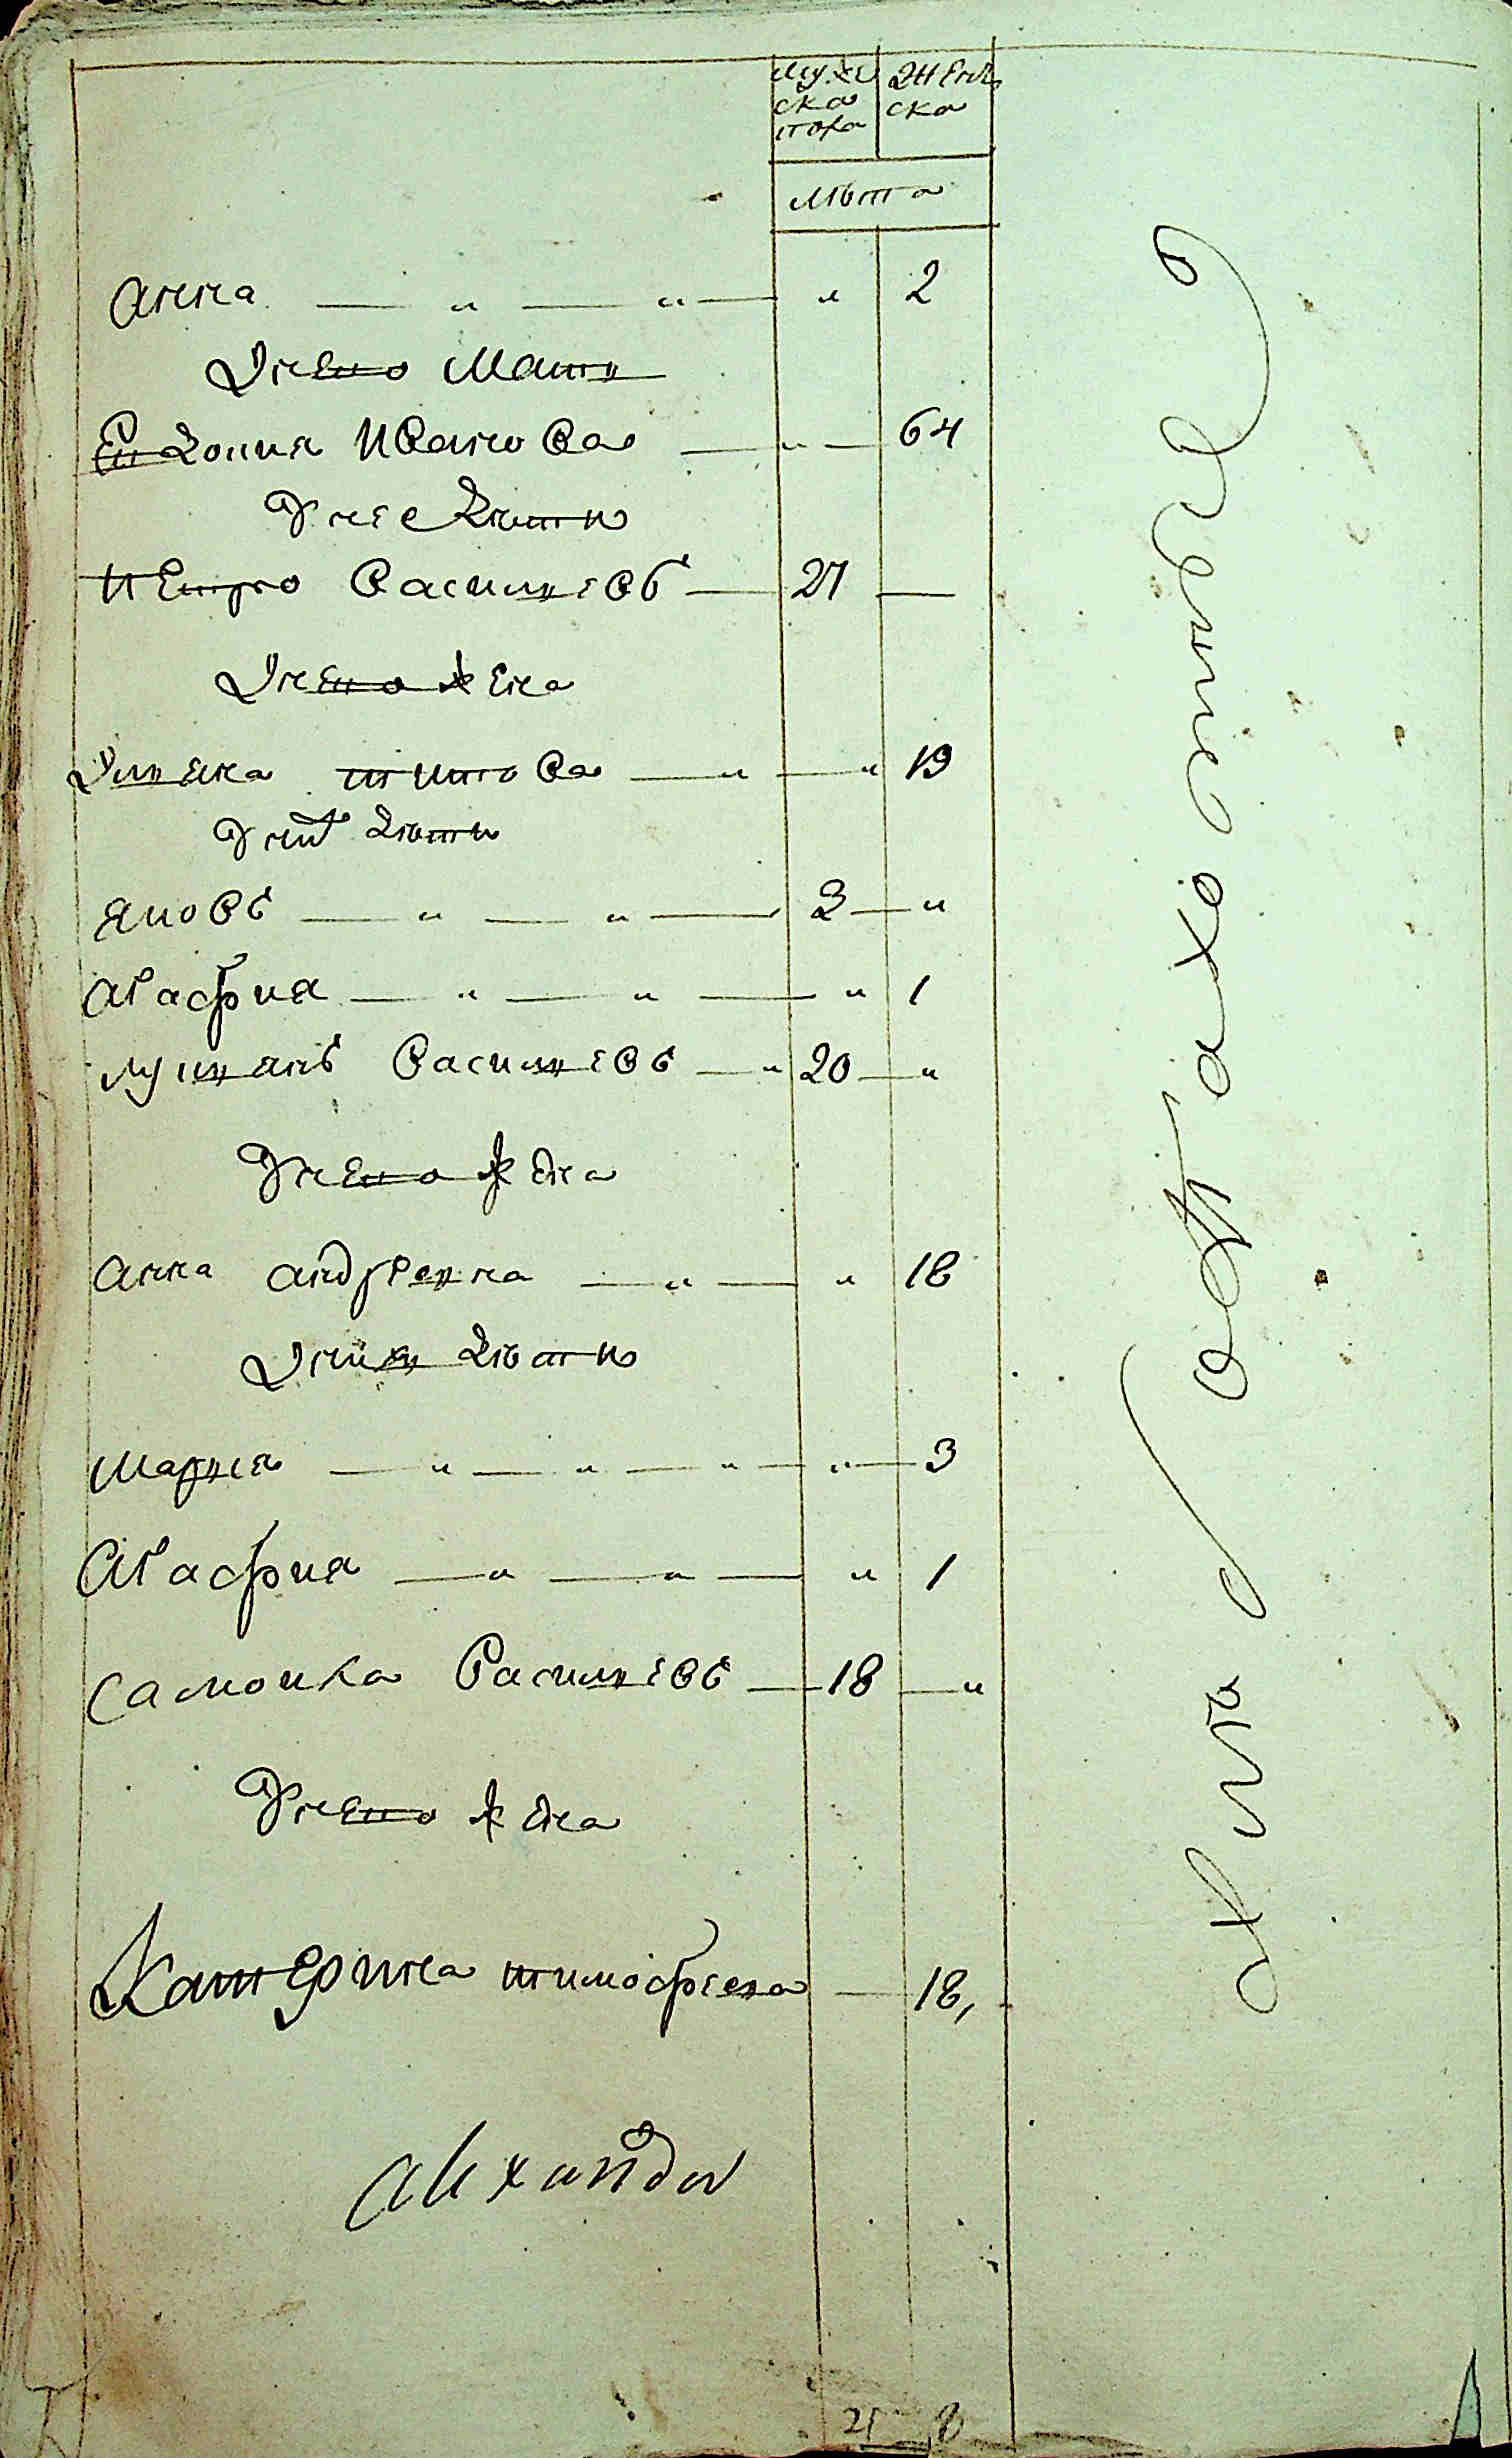 муже женс
ска ска
пола
лѣта
Анна — „ — „ — „ 2
Унего Мать
Евдокия Иванова — „ — 64
Унее дѣти
Петро Васильевъ — 27 —
Унего жена
Ульяна титова — „ — „ 19
Унихъ дѣти
Яковъ — „ — „ — 3 — „
Агафия — „ — „ — „ 1
лукьянъ Васильевъ — „ 20 — „
Унего жена
Анна андреевна — „ — „ 18
Унихъ дѣти
Мария — „ — „ — „ — „ — 3
Агафия — „ — „ — „ 1
Самойла Васильевъ — 18 — „
Унего жена
Катерина тимофеева — 18,
Alexander